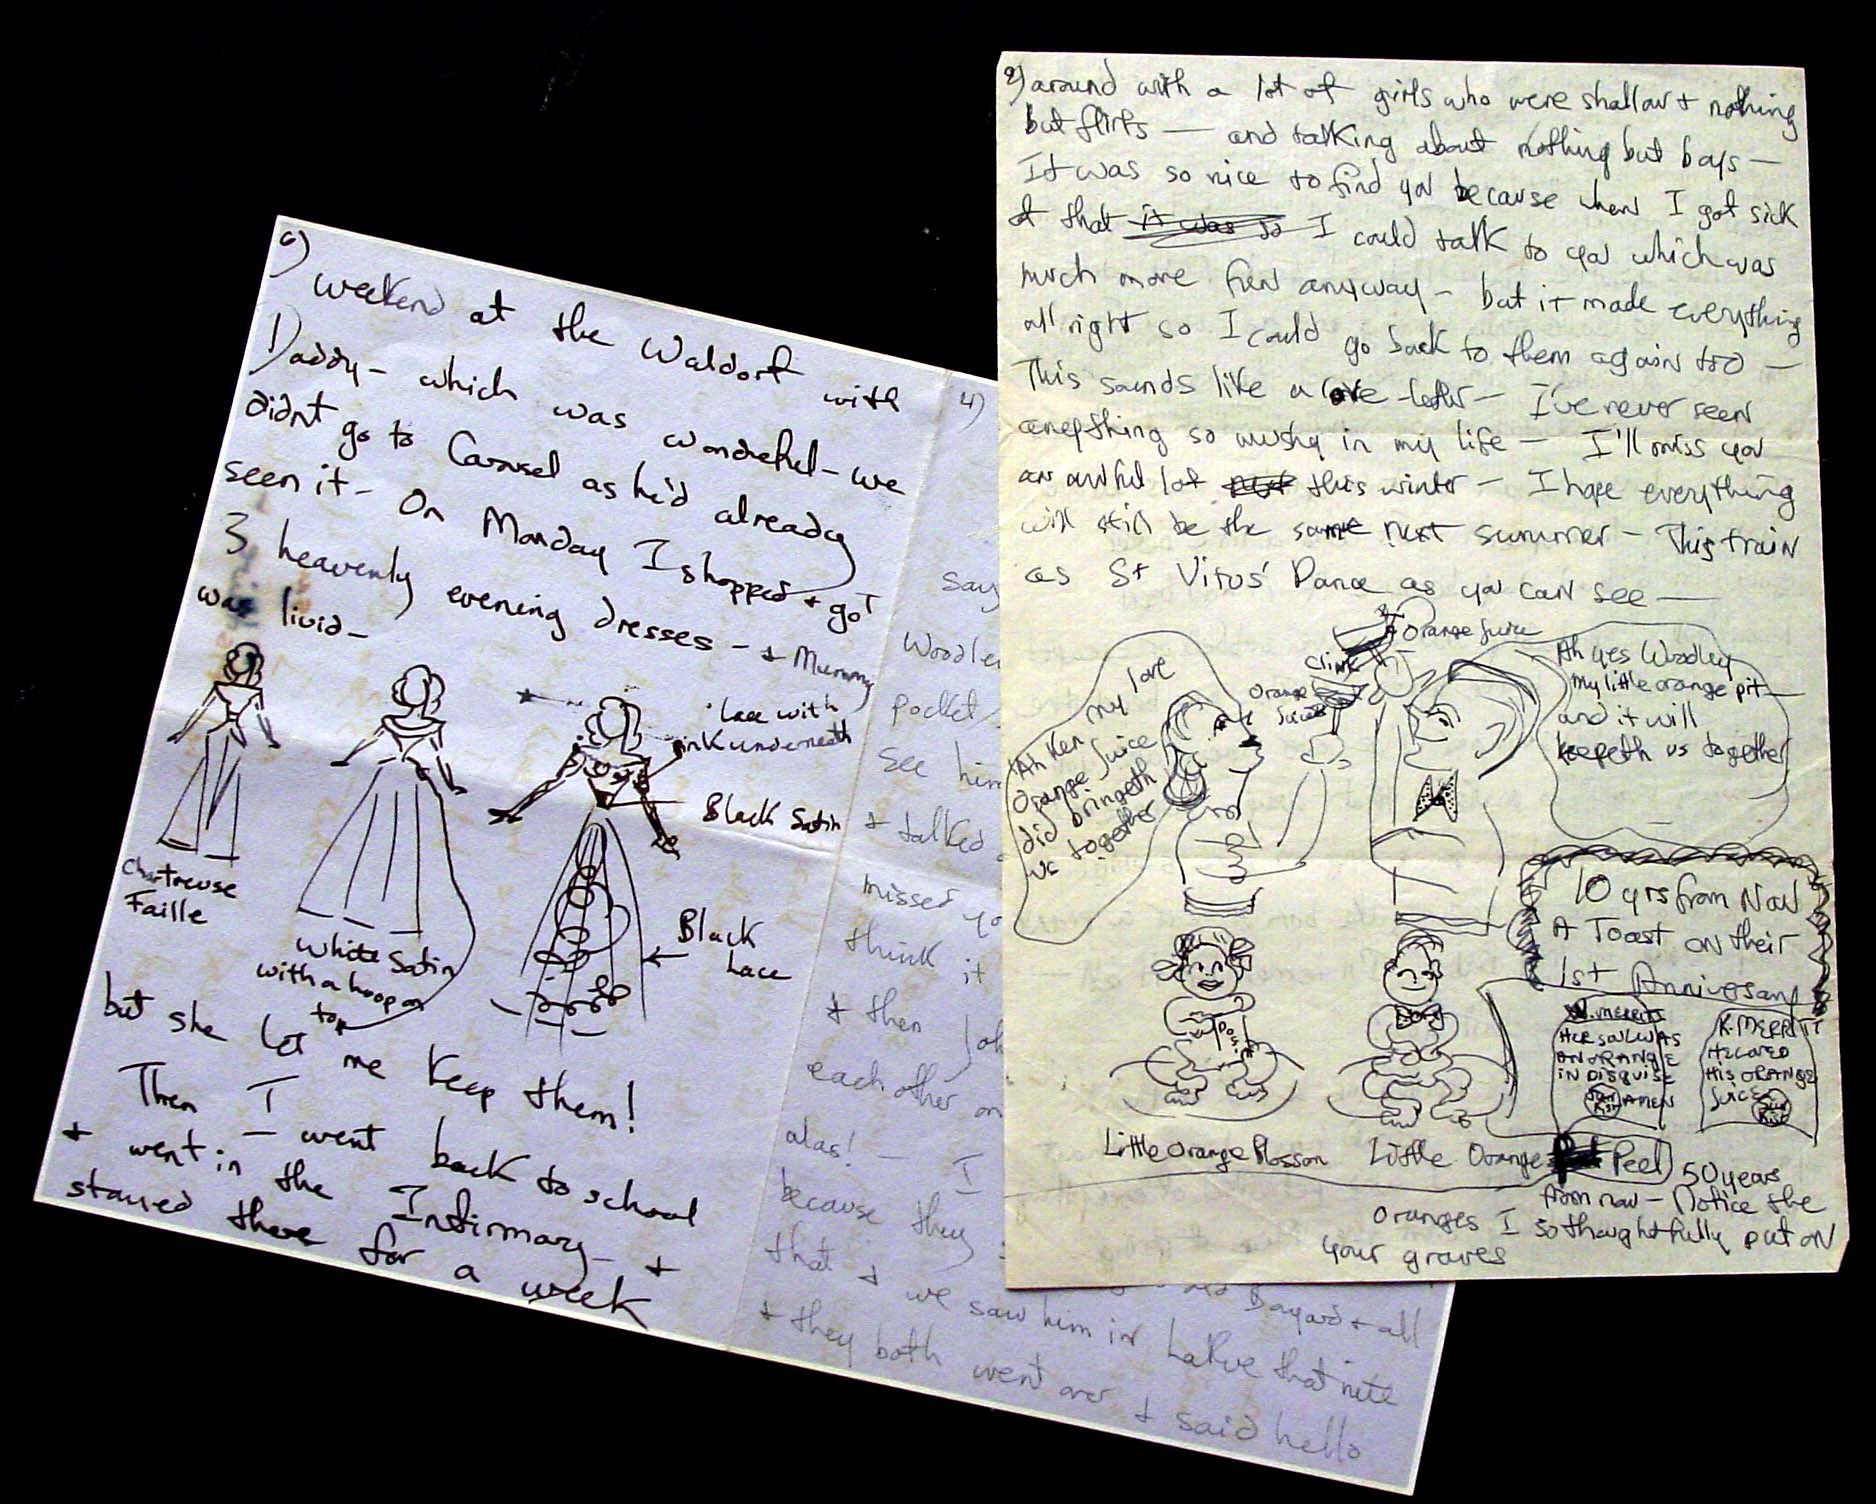 6)
weekend at the Waldorf with
Daddy - which was wonderful - we
didnt go to Carousel as he'd already
seen it - On Monday I shopped + got
3 heavenly evening dresses - + Mummy
was livid -
lace with
pink underneath
Black Satin
Chartreuse
Faille
White Satin
with a hoop on
top
Black
Lace
but she let me keep them!
Then I - went back to school
+ went in the Infirmary - +
stayed there for a week
4)
say
Woodley
pocket
see him
+ talked
missed yo
think it
+ then Joh
each other on
alas! - I
because they
that + we saw him in LaRue that nite
Bayard + all
+ they both went over + said hello
2) around with a lot of girls who were shallow + nothing
but flirts - and talking about nothing but boys -
It was so nice to find you because when I got sick
of that it was so I could talk to you which was
much more fun anyway - but it made everything
all right so I could go back to them again too -
This sounds like a love letter - I've never seen
anything so mushy in my life - I'll miss you
an awful lot this winter - I hope everything
will still be the same next summer - This train
as St Vitus' Dance as you can see -
Ah Ken my love
Orange Juice
did bringeth
us together
Clink
Orange Juice
Orange Juice
Ah yes Woodley
my little orange pit -
and it will
keepeth us together
10 yrs from Now
A Toast on their
1st Anniversary
Little Orange Blossom
Little Orange Peel
W. MERRITT
HER SOUL WAS
AN ORANGE
IN DISGUISE
SUN KIST AMEN
K. MERRITT
HE LOVED
HIS ORANGE
JUICE
SUN KIST
50 years
from now - Notice the
oranges I so thoughtfully put on
your graves